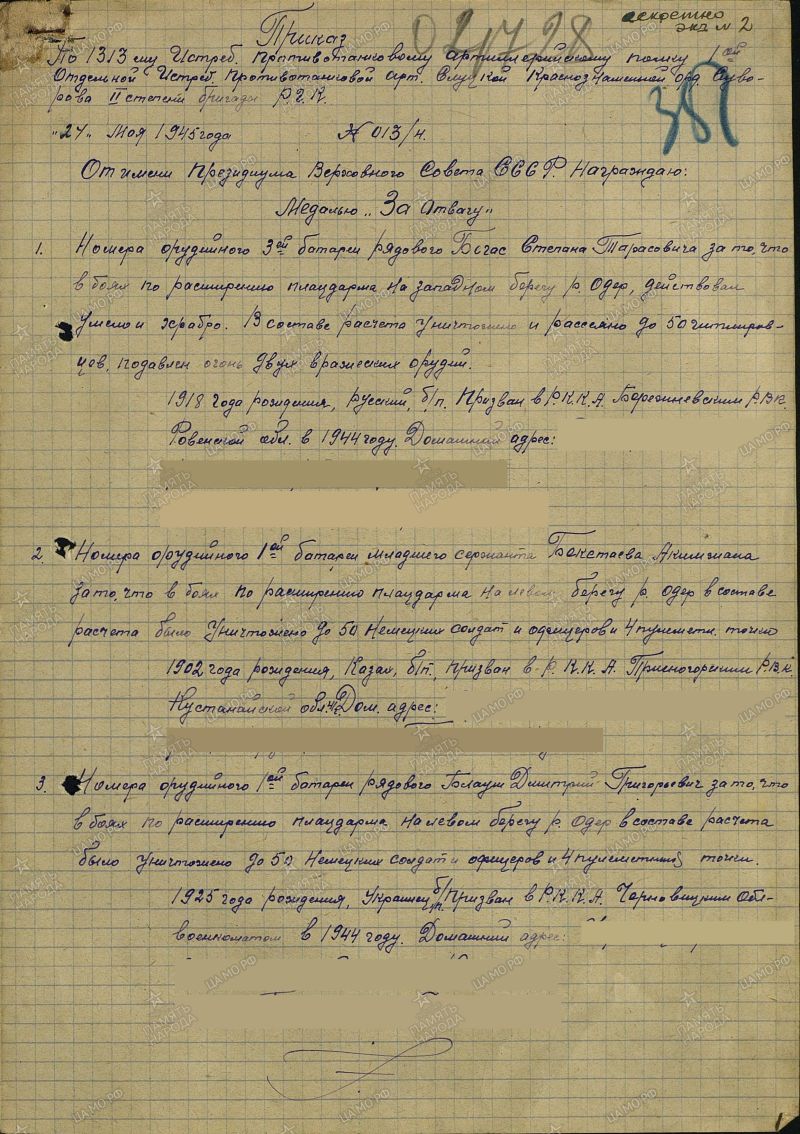 секретно
экз. № 2
021728
381
Приказ
По 1313 му Истреб. Противотанковому артиллерийскому полку 1ой
Отдельной Истреб. Противотанковой Арт. Слуцкой Краснознаменной орд. Суво-
рова II степени бригады Р.Г.К.
"27" Мая 1945 года № 013/н.
От имени Президиума Верховного Совета СССР. Награждаю:
Медалью „За Отвагу"
1. Номера орудийного 3ей батареи рядового Степана Тарасовича за то, что
в боях по расширению плацдарма на западном берегу р. Одер, действовал
умело и храбро. В составе расчета уничтожено и рассеяно до 50 гитлеров-
цев, подавлен огонь двух вражеских орудий.
1918 года рождения, русский, б/п. Призван в Р.К.К.А. Р.В.К.
Ровенской обл. в 1944 году. Домашний адрес:
2. Номера орудийного 1ой батареи младшего сержанта Бекстаева
за то, что в боях по расширению плацдарма на левом берегу р. Одер в составе
расчета было уничтожено до 50 немецких солдат и офицеров и 4 пулеметн. точки
1902 года рождения, Казах, б/п., призван в Р.К.К.А. Р.В.К.
Кустанайской обл. Дом. адрес:
3. Номера орудийного 1ой батареи рядового Блауш Дмитрий Григорьевич за то, что
в боях по расширению плацдарма на левом берегу р. Одер в составе расчета
было уничтожено до 50 немецких солдат и офицеров и 4 пулеметных точки.
1925 года рождения, Украинец б/п. Призван в Р.К.К.А. Черновицким Обл-
военкоматом в 1944 году. Домашний адрес:
1
ПАМЯТЬ НАРОДА
ЦАМО.РФ